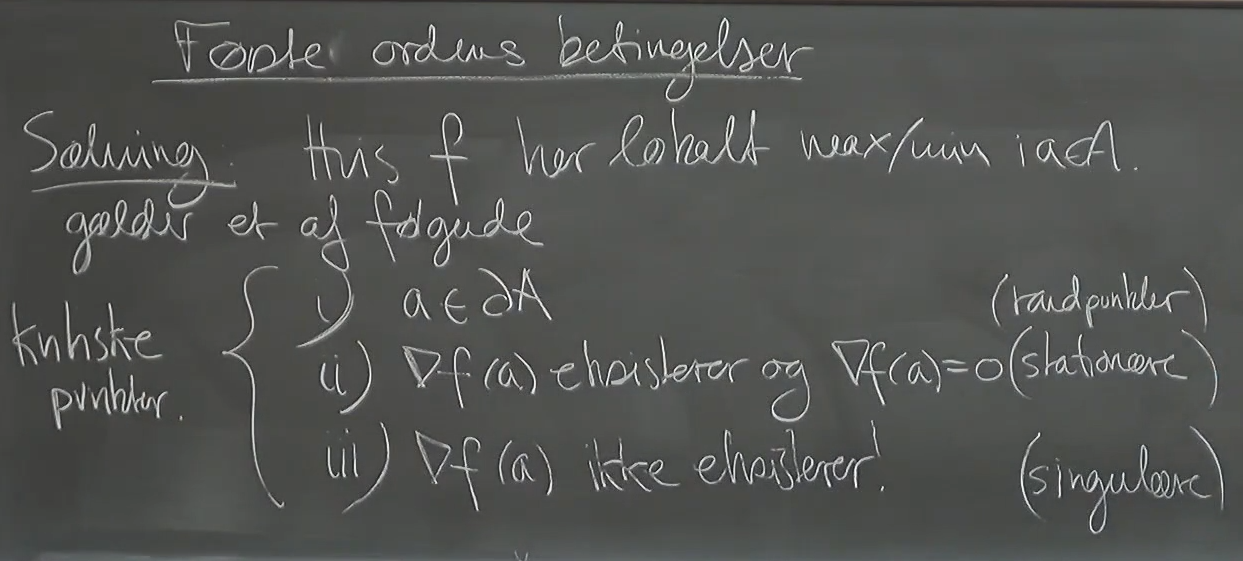 Første ordens betingelser
Sætning. Hvis f har lokalt max/min i a∈A.
gælder et af følgende
i) a ∈ ∂A (randpunkter)
kritiske
ii) ∇f(a) eksisterer og ∇f(a)=0 (stationære)
punkter.
iii) ∇f(a) ikke eksisterer! (singulære)